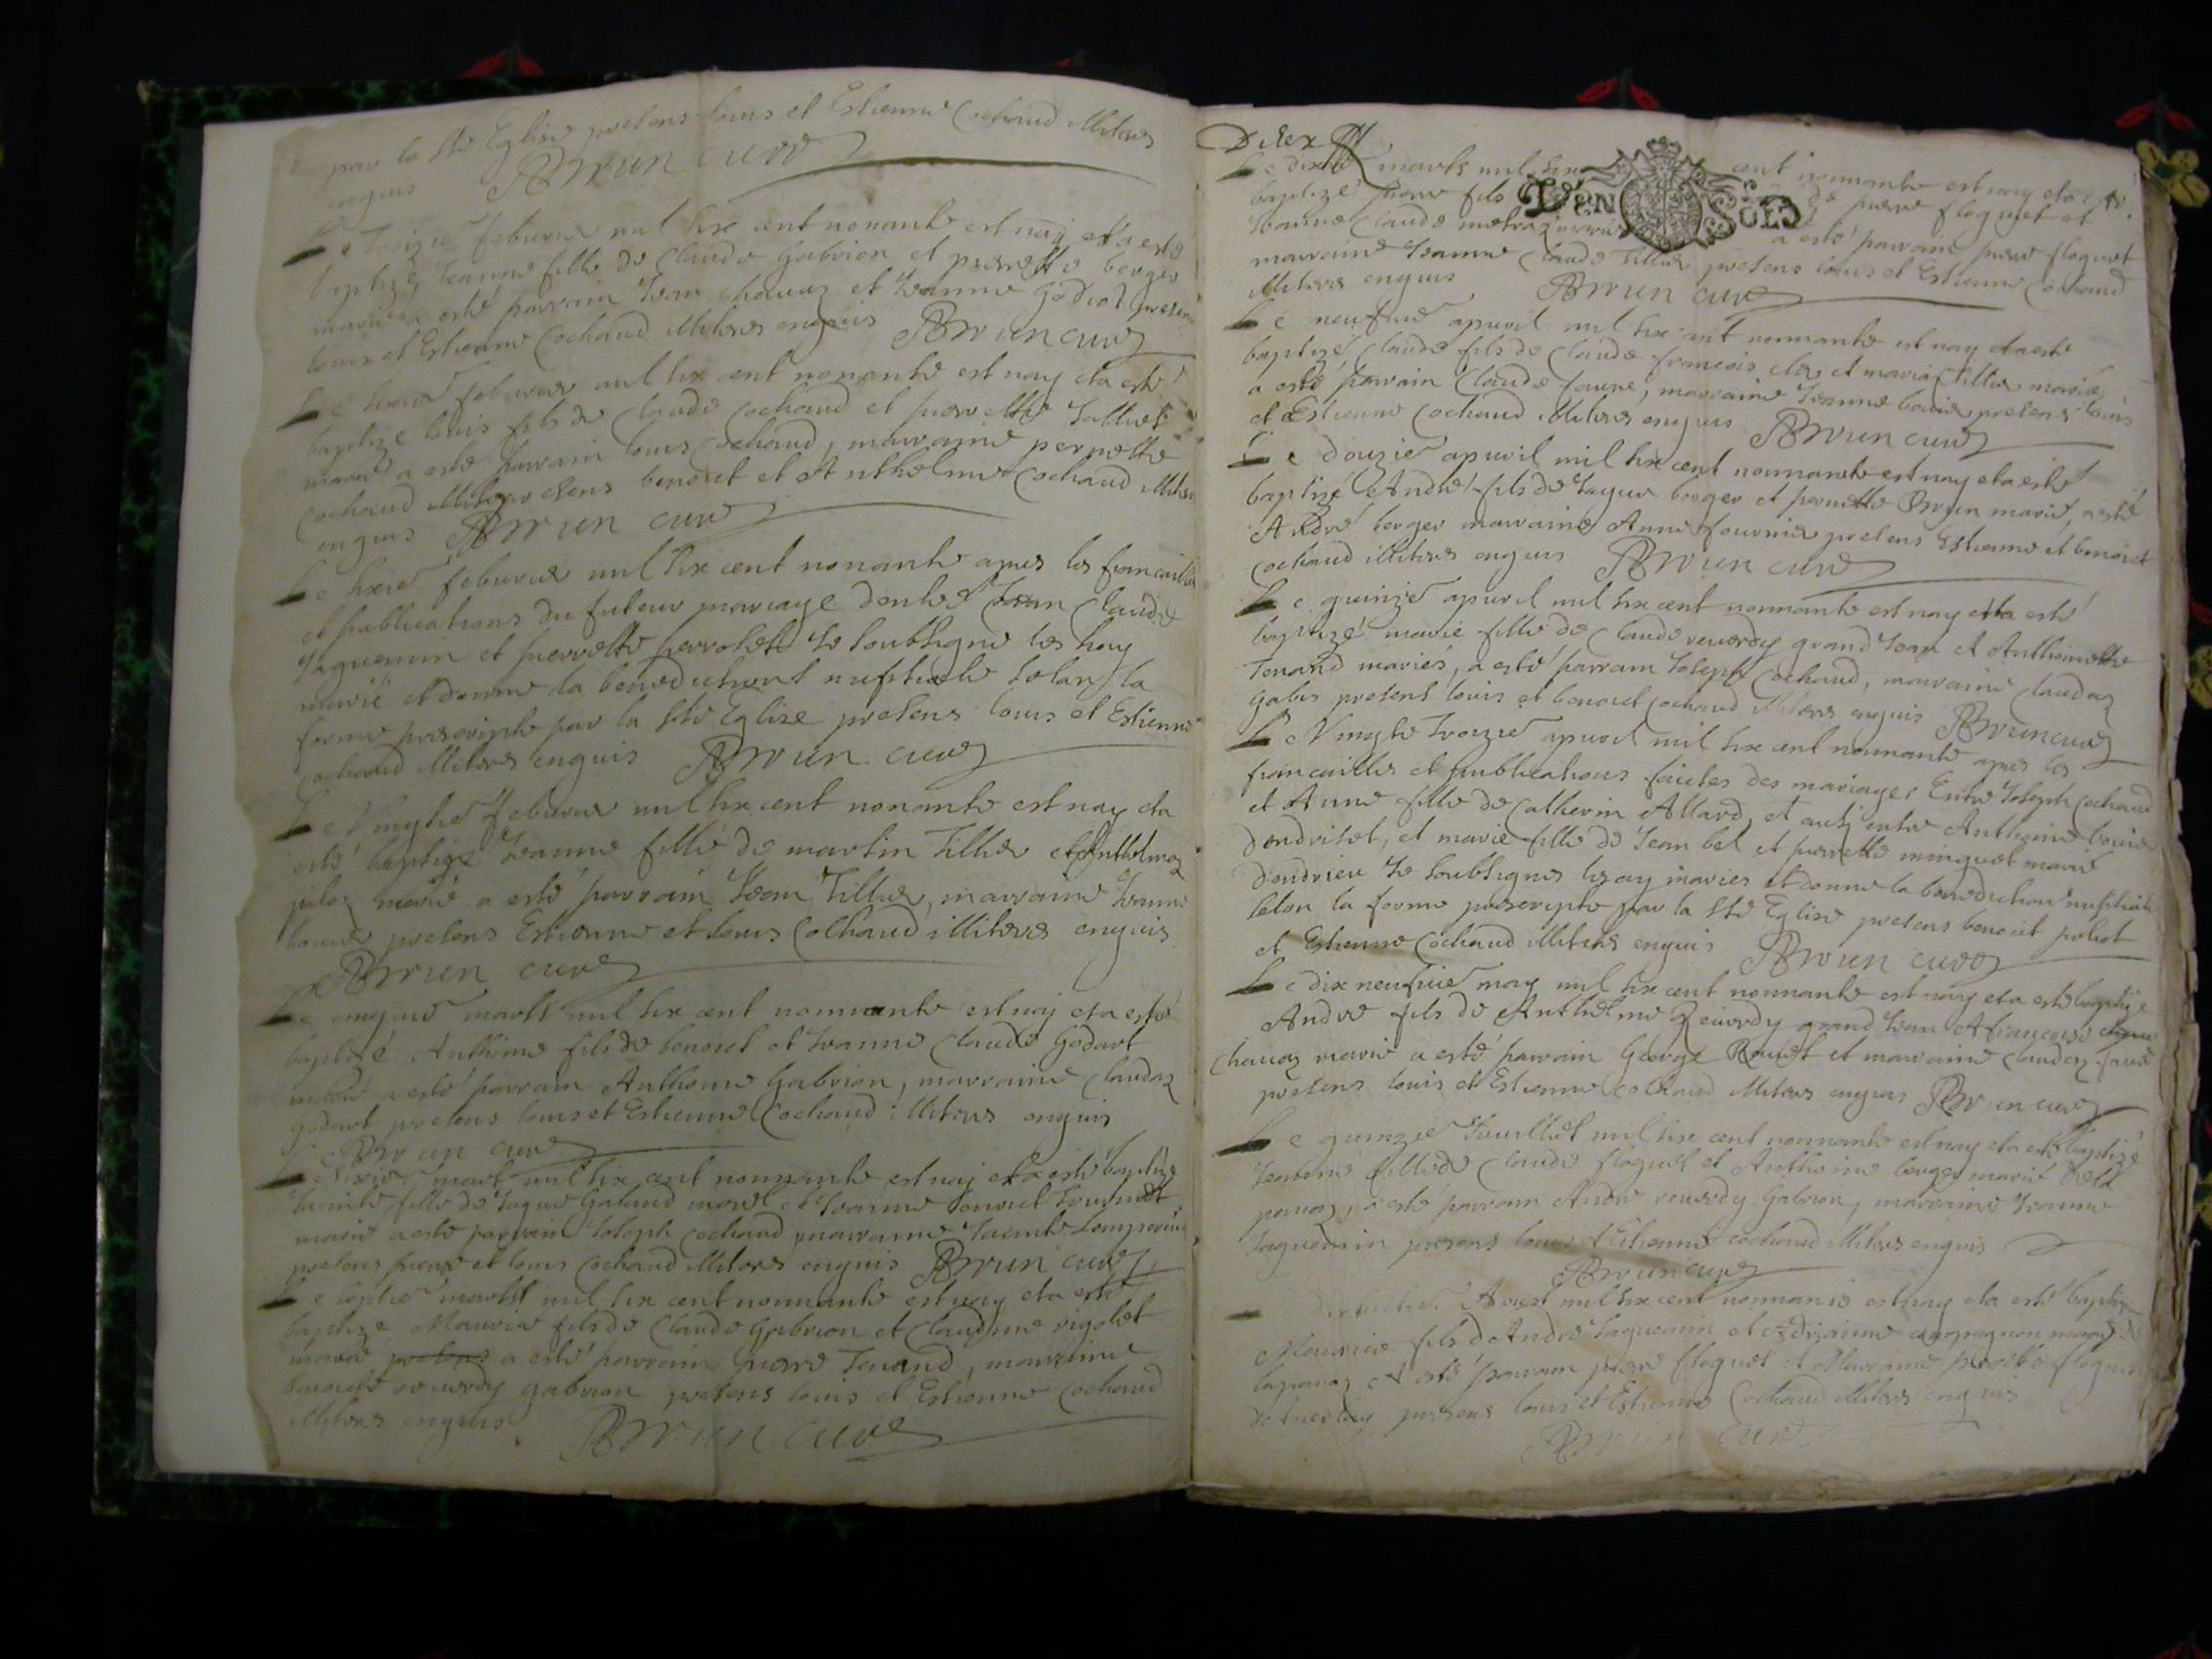 par la Ste Eglise presens Louis et Estienne Cochaud illiteres
enquis Brun curé
Le febvrier mil six cent nonante est nay et a esté
baptizé Jeanne fille de Claude Gabrion et pierrette berger
mariés a esté parrain Jean chavaz et Jeanne Godiot presens
louis et Estienne Cochaud illiteres enquis Brun curé
Le sixie febvrier mil six cent nonante est nay et a esté
baptize louis fils de Claude Cochaud et pierrette
mariés a esté parrain louis Cochaud, marraine pernette
Cochaud presens benoict et Anthelme Cochaud illiteres
enquis Brun curé
Le sixie febvrier mil six cent nonante apres les fiancailles
et publications du futeur mariage dentre Claude
Jaquemin et pierrette perrolet Je soubsigne les hay
marié et donne la benediction nuptiale selon la
forme prescripte par la Ste Eglise presens louis et Estienne
Cochaud illiteres enquis Brun curé
Le Vingtie febvrier mil six cent nonante est nay et a
esté baptizé Jeanne fille de martin Tillier et Anthelmaz
marié a esté parrain Jean Tillier, marraine Jeanne
bouvier presens Estienne et louis Cochaud illiteres enquis
Brun curé
Le cinquie marts mil six cent nonnante est nay et a esté
baptizé Anthoine fils de benoict et Jeanne Claude Godart
marié a esté parrain Anthoine Gabrion, marraine Claudaz
godart presens louis et Estienne Cochaud illiteres enquis
Brun curé
Le Sixie mart mil six cent nonnante est nay et a esté baptizé
Jacinte fille de Jaque Galand morel et Jeanne benoict
marié a esté parrain Joseph Cochaud marraine Jacinte
presens pierre et louis Cochaud illiteres enquis Brun curé
Le septie marts mil six cent nonnante est nay et a esté
baptize Maurice fils de Claude Gabrion et Claudine rigolet
marié presens a esté parrain pierre Tenand, marraine
benoicte reverdy gabrion presens louis et Estienne Cochaud
illiteres enquis Brun curé
Le marts mil six cent nonnante est nay et a esté
baptizé pierre fils DEUX SOLS de pierre floquet et
Jeanne Claude a esté parrain pierre floquet
marraine Jeanne Claude Tillier presens louis et Estienne Cochaud
illiteres enquis Brun curé
Le neufvie apvril mil six cent nonnante est nay et a esté
baptizé Claude fils de Claude francois et maria Tillier mariés
a esté parrain Claude faure, marraine Jeanne bouvier presens louis
et Estienne Cochaud illiteres enquis Brun curé
Le douzie apvril mil six cent nonnante est nay et a esté
baptizé André fils de Jaque berger et pernette Brun marié, a esté
André berger marraine Anne fournier presens Estienne et benoict
Cochaud illiteres enquis Brun curé
Le quinzie apvril mil six cent nonnante est nay et a esté
baptizé marie fille de Claude reverdy grand Jean et Anthoinette
Tenand mariés, a esté parrain Joseph Cochaud, marraine Claudaz
presens louis et benoict Cochaud illiteres enquis Brun curé
Le Vingte troizie apvril mil six cent nonnante apres les
fiancailles et publications faictes des mariages Entre Joseph Cochaud
et Anne fille de Catherin Allard, et aussi entre Anthoine bouvier
et marie fille de Jean bel et pierrette minguet marié
Je soubsignes les ay mariés et donne la benediction nuptiale
selon la forme prescripte par la Ste Eglise presens benoict
et Estienne Cochaud illiteres enquis Brun curé
Le dix neufvie may mil six cent nonnante est nay et a esté baptizé
André fils de Anthelme Reverdy grand Jean et francoise
chavaz marié a esté parrain George et marraine Claudaz
presens louis et Estienne Cochaud illiteres enquis Brun curé
Le quinzie Juillet mil six cent nonnante est nay et a esté baptizé
Jeanne fille de Claude floquet et Anthoine berger marié
a esté parrain André reverdy Gabrion, marraine Jeanne
Jaquemin presens louis et Estienne Cochaud illiteres enquis
Brun curé
Aoust mil six cent nonnante est nay et a esté baptizé
Maurice fils d André Jaquemin et compagnon
a esté parrain pierre floquet et Marraine pierrette
presens louis et Estienne Cochaud illiteres enquis
Brun curé